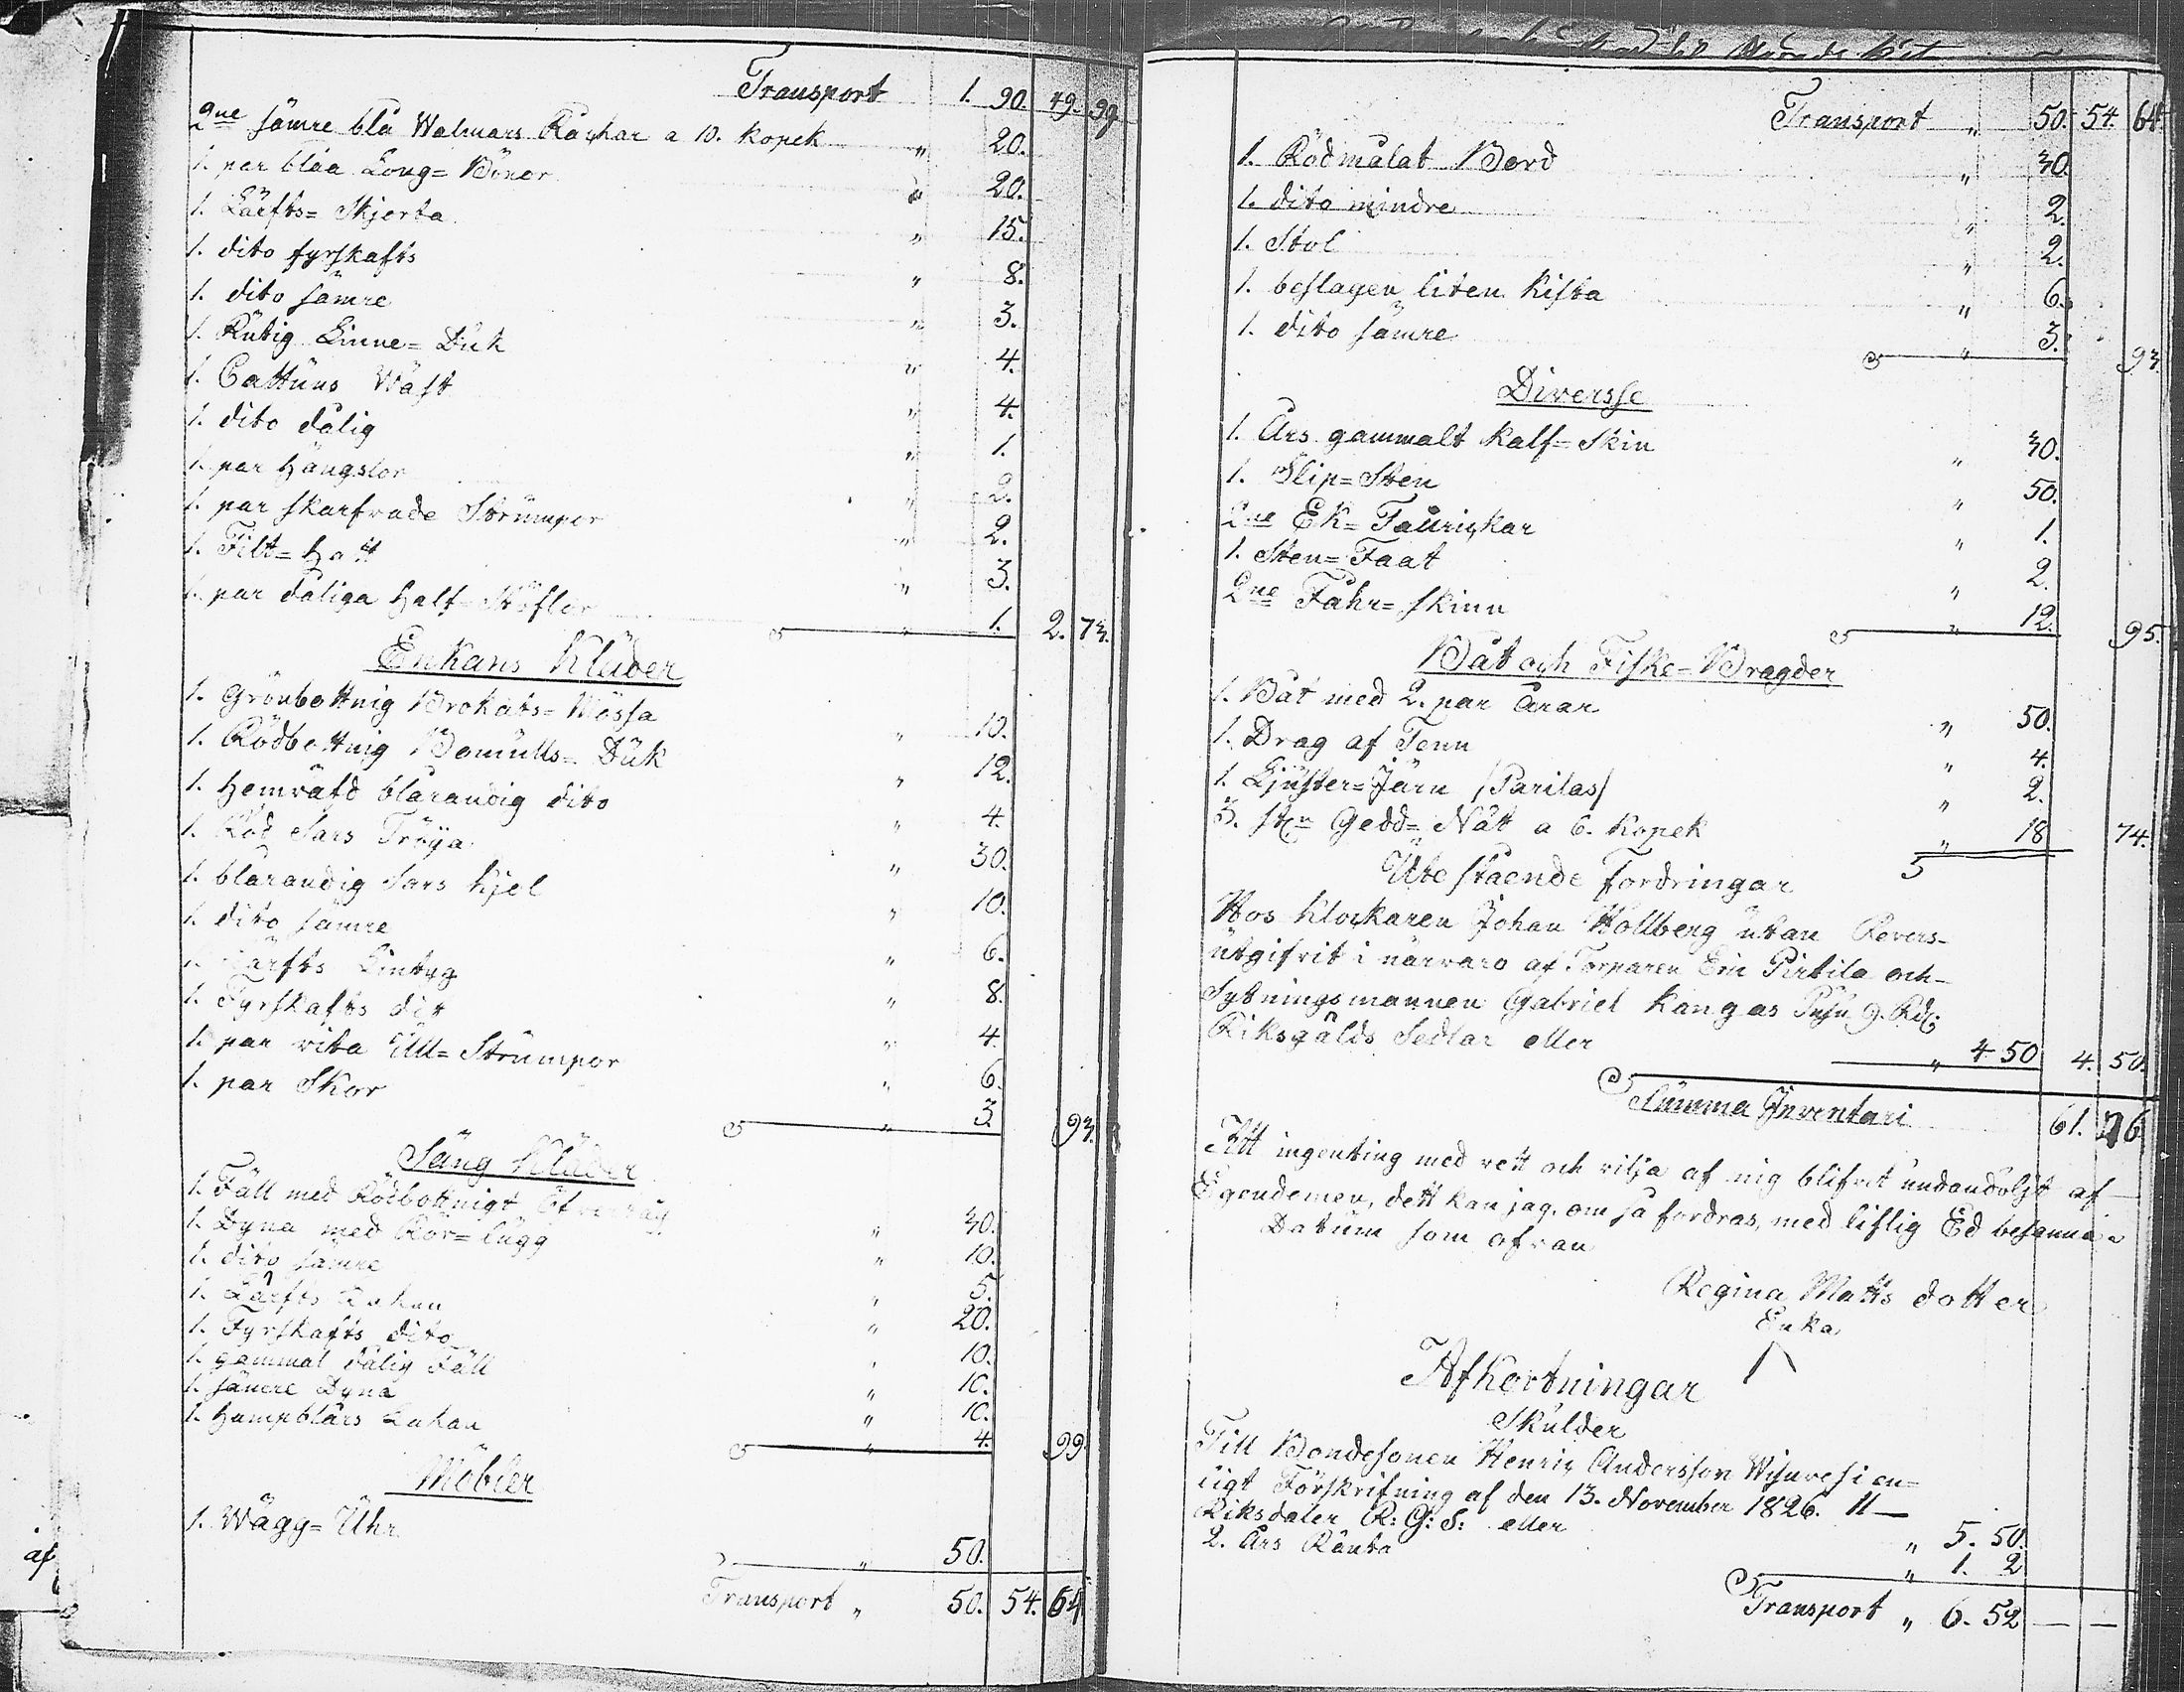 Transport 1. 90. 49. 99
2ne sämre blå Walmars Råckar a 10. Kopek " 20.
1. par blåa Long=Böxor " 20.
1. Lärfts=Skjorta " 15.
1. dito fyrskafts " 8.
1. dito sämre " 3.
1. Rutig Linne=Duk " 4.
1. Cattuns Wäst " 4.
1. dito dålig " 1.
1. par Hängslor " 2.
1. par skarfvade Strümpor " 2.
1. Filt=Hatt " 3.
1. par dåliga Half=Stöflor " 1. 2. 73.
Enkans Kläder
1. Grönbottnig Brokats=Mössa " 10.
1. Rödbottnig Bomulls=Duk " 12.
1. Hemväfd blårandig dito " 4.
1. Röd Sars Tröya " 30.
1. blårandig Sars Kjol " 10.
1. dito sämre " 6.
1. Lärfts Lintyg " 8.
1. Fyrskafts dit " 4.
1. par vita Ull=Strumpor " 6.
1. par Skor " 3. 93.
Säng Kläder
1. Fäll med Rödbottnigt Öfverväy " 30.
1. Dyna med Rör=lugg " 10.
1. dito sämre " 5.
1. Lärfts Lakan " 20.
1. Fyrskafts dito " 10.
1. gammal dålig Fäll " 10.
1. sämre Dyna " 10.
1. Hampblårs Lakan " 4. 99
Möbler
1. Wägg=Uhr " 50.
Transport " 50. 54. 64
Transport " 50. 54. 64.
1. Rödmålat Bord " 30.
1. dito mindre " 2.
1. Stol " 2.
1. beslagen liten Kista " 6.
1. dito sämre " 3. 93.
Diversse
1. Års gammalt Kalf=Skin " 30.
1. Slip=Sten " 50.
2ne Ek=Fauriskar " 1.
1. Sten=Faat " 2.
2ne Fåhr=skinn " 12. 95.
Båt och Fiske=Bragder
1. Båt med 2. par Årar " 50.
1. Drag af Tenn " 4.
1. Ljuster=Järn /Parilas/ " 2.
3. st:n Gedd=Nät a 6. Kopek " 18 74.
Utestående fordringar
Hos Klockaren Johan Wollberg utan Revers-
utgifvit i närvaro af Torparen Eric Pirtila och-
Sytningsmannen Gabriel Kangas 9. Rd:
Riksgälds Sedlar eller " 4 50 4. 50.
Summa Inventari 61. 76
Att ingenting med vett och vilja af mig blifvit undandoljt af
Egendomen, dett kan jag, om så fordras, med liflig Ed besanna.
Datum som ofvan
Regina Matts dotter
Enka
Afkortningar
Skulder
Till Bondesonen Henric Andersson en=
ligt Förskrifning af den 13. November 1826. 11—
Riksdaler R: G: S: eller " 5. 50.
2. Års Ränta " 1. 2
Transport " 6. 52 — —
af